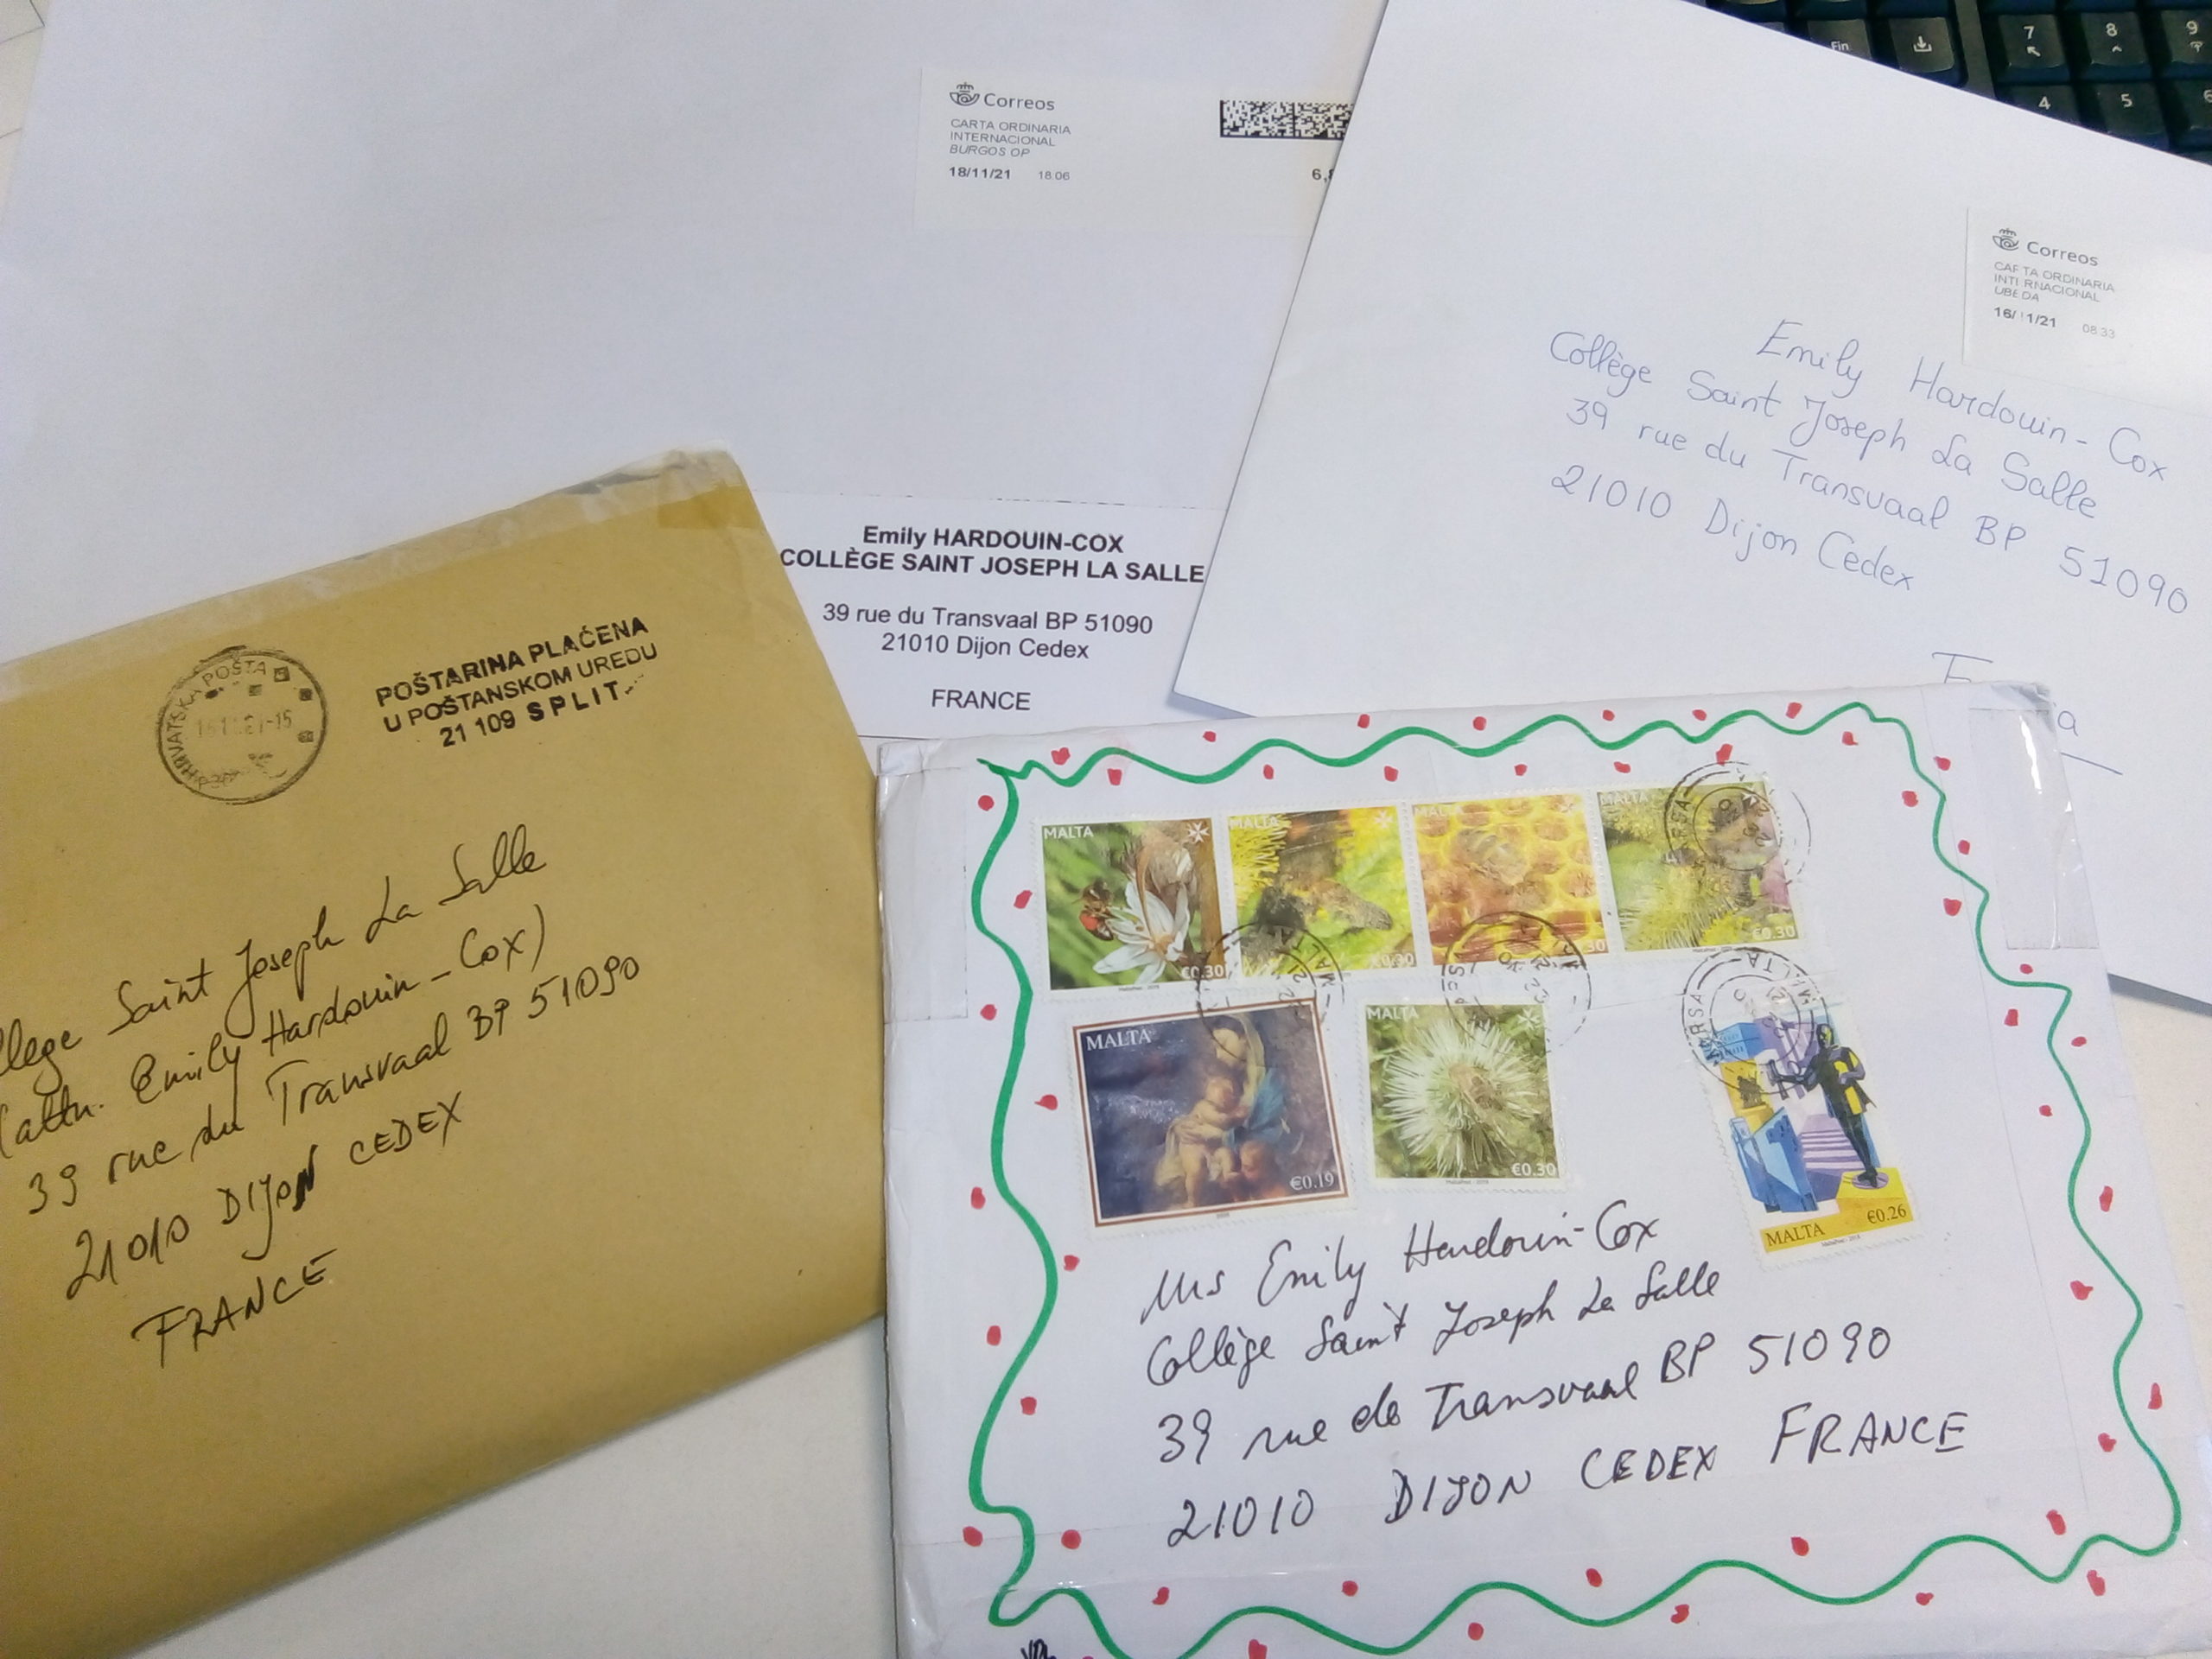 Correos
CARTA ORDINARIA
INTERNACIONAL
BURGOS OP
18/11/21 18:06
Emily HARDOUIN-COX
COLLÈGE SAINT JOSEPH LA SALLE
39 rue du Transvaal BP 51090
21010 Dijon Cedex
FRANCE
Fin
7
8
9
4
5
6
Correos
CARTA ORDINARIA
INTERNACIONAL
UBEDA
16/11/21 08:33
Emily Hardouin-Cox
Collège Saint Joseph La Salle
39 rue du Transvaal BP 51090
21010 Dijon Cedex
HRVATSKA POŠTA
POŠTARINA PLAĆENA
U POŠTANSKOM UREDU
21 109 SPLIT
Saint Joseph La Salle
(attn. Emily Hardouin-Cox)
39 rue du Transvaal BP 51090
21010 DIJON CEDEX
FRANCE
MALTA
€0.30
MALTA
€0.30
MALTA
MALTA
€0.30
MALTA
€0.19
MALTA
€0.30
MALTA €0.26
MARSA
MALTA
Mrs Emily Hardouin-Cox
Collège Saint Joseph La Salle
39 rue de Transvaal BP 51090
21010 DIJON CEDEX FRANCE